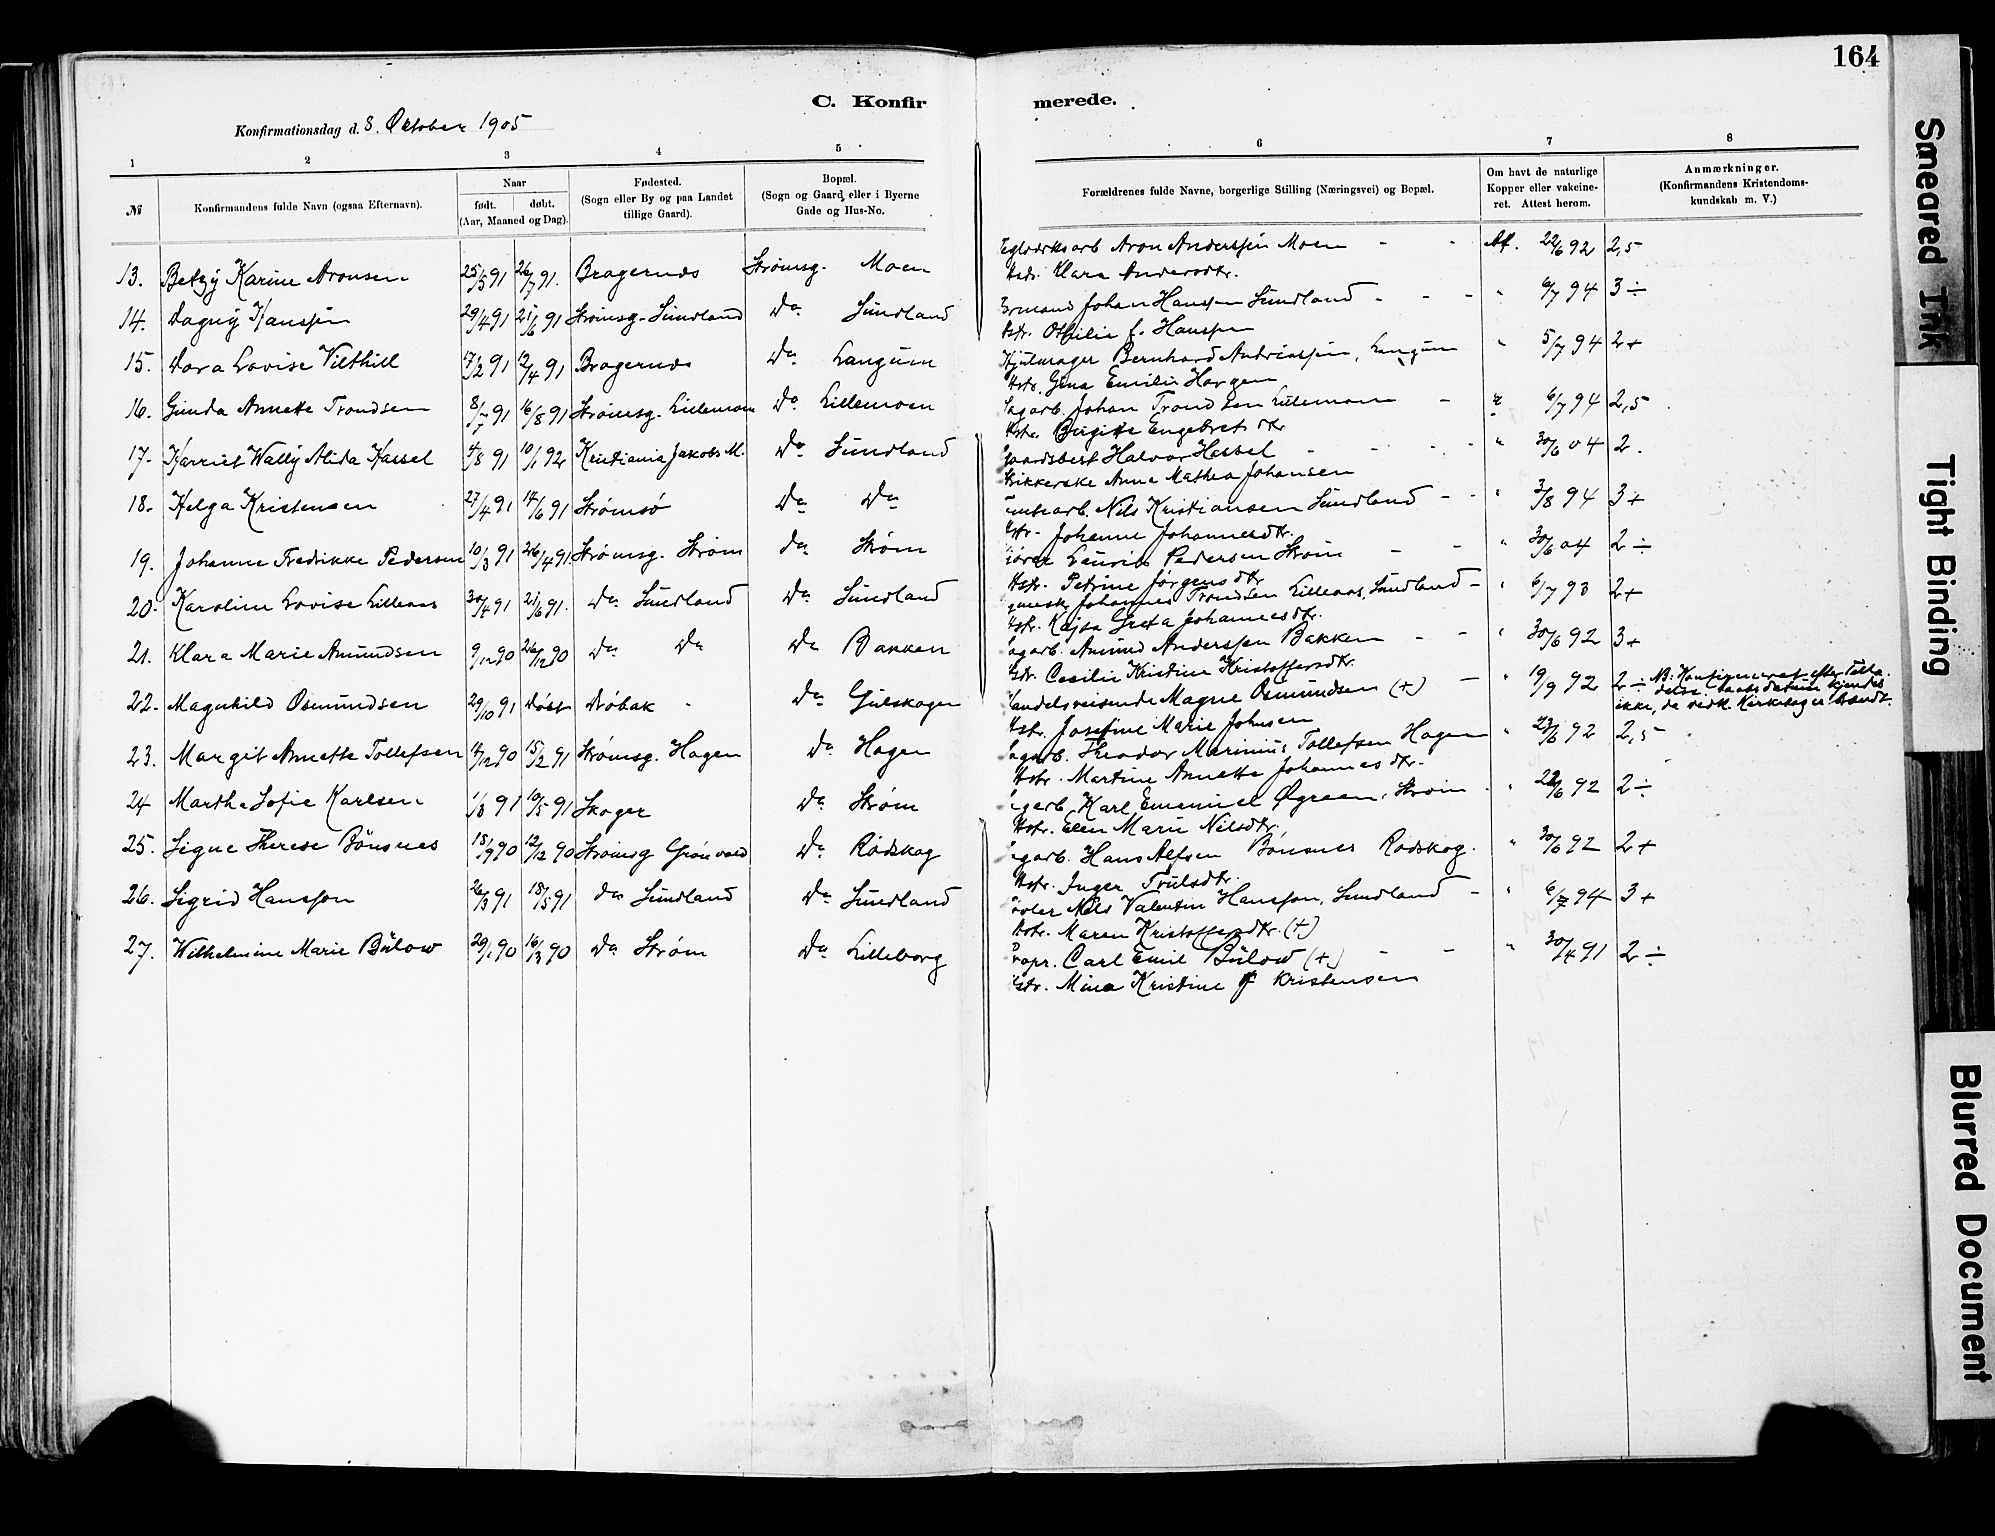 164
C. Konfirmerede.
Konfirmationsdag d. 8. Oktober 1905
1 2 3 4 5 6 7 8
№ Konfirmandens fulde Navn (ogsaa Efternavn). Naar født. døbt. (Aar, Maaned og Dag). Fødested. (Sogn eller By og paa Landet tillige Gaard). Bopæl. (Sogn og Gaard, eller i Byerne Gade og Hus-No. Forældrenes fulde Navne, borgerlige Stilling (Næringsvei) og Bopæl. Om havt de naturlige Kopper eller vakcineret. Attest herom. Anmærkninger. (Konfirmandens Kristendomskundskab m. V.)
13. Betzy Karine Aronsen 25/3 91 26/7 91. Bragernæs Strømsg. Moen Teglværksarb Aron Anderssen Moen - - Af. 22/6 92 2,5
Klara Andersdtr.
14. Dagny Hanssen 29/4 91 21/6 91 Strømsg. Sundland Do Sundland Johan Hanssen Sundland - - - " 6/7 94 3 ÷
Hstr. Othilie f. Hanssen
15. Dora Lovise Vilthill 17/2 91 12/4 91 Bragernæs Do Langum Hjulmager Bernhard Andreassen, Langum " 5/7 94 2+
Hstr. Gina Emilie Horgen
16. Gunda Annette Trondsen 8/7 91 16/8 91 Strømsg. Lillemoen Do Lillemoen Sagarb. Johan Trondsen Lillemoen - " 6/7 94 2,5
Hstr. Birgitte Engebretsdtr
17. Harriet Wally Alida Hassel 4/8 91 10/1 92 Kristiania Jakobs M. Do Sundland Gaardsbest Halvor Hassel - - - - " 30/6 04 2.
Strikkerske Anna Mathea Johansen
18. Helga Kristensen 27/4 91 14/6 91 Strømsø Do Do Nils Kristiansen Sundland - - " 3/8 94 3+
Hstr. Johanne Johannesdtr.
19. Johanne Fredrikke Pedersen 10/3 91 26/4 91. Strømsg. Strøm Do Strøm Laurits Pedersen Strøm - - " 30/6 04 2 ÷
Hstr. Petrine Jørgensdtr
20. Karoline Lovise Lilleaas 30/4 91 21/6 91. Do Sundland Do Sundland Johannes Trondsen Lilleaas, Sundland - " 6/7 93 2+
Hstr. Kajsa Greta Johannesdtr.
21. Klara Marie Amundsen 9/12 90 26/12 90 Do Do Do Bakken Sagarb. Amund Anderssen Bakken - - " 30/6 92 3+
Hstr. Cecilie Kristine Kristoffersdtr.
22. Magnhild Osmundsen 29/10 91 Døbt Drøbak - Do Gulskogen Handelsreisende Magne Osmundsen (+) - " 19/9 92 2 ÷ NB: Konfirmeret efter Tilladelse. Daabsdatum kjendes ikke, da vedk. Kirkebøger brændt.
Hstr. Josefine Marie Johnsen
23. Margit Annette Tollefsen 14/12 90 15/2 91 Strømsg. Hagen Do Hagen Sagarb. Theodor Marinius Tollefsen Hagen " 23/6 92 2,5
Hstr. Martine Annette Johannesdtr.
24 Marthe Sofie Karlsen 1/3 91 10/5 91 Skoger Do Strøm Sagarb. Karl Emanuel Øgreen, Strøm " 22/6 92 2 ÷
Hstr. Elen Marie Nilsdtr.
25. Signe Therese Bönsnes 18/9 90 12/12 90 Strømsg Grønvold Do Rødskog Sagarb. Hans Alfsen Bönsnes Rødskog. " 30/6 92 2+
Hstr. Inger Trulsdtr.
26. Sigrid Hanssen 26/3 91 18/5 91 Do Sundland Do Sundland Nils Valentin Hanssen, Sundland - " 6/7 94 3+
Hstr. Maren Kristoffersdtr. (+)
27. Wilhelmine Marie Bülow 29/1 90 16/3 90 Do Strøm Do Lilleborg Propr. Carl Emil Bülow (+) - - " 30/4 91 2 ÷
Hstr. Mina Kristine f Kristensen
Smeared Ink
Tight Binding
Blurred Document